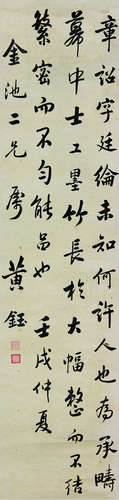 章詔字廷綸未知何許人也為承疇
幕中士工墨竹長於大幅整而不结
繁密而不匀能品也 壬戌仲夏
金池二兄 属 黄鈺